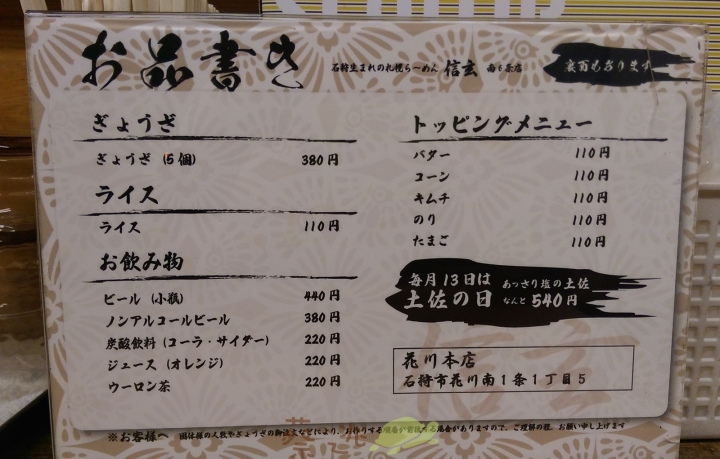 お品書き
石狩生まれの札幌らーめん 信玄 南6条店
裏面もあります
ぎょうざ
ぎょうざ (5個) 380円
ライス
ライス 110円
お飲み物
ビール (小瓶) 440円
ノンアルコールビール 380円
炭酸飲料 (コーラ・サイダー) 220円
ジュース (オレンジ) 220円
ウーロン茶 220円
トッピングメニュー
バター 110円
コーン 110円
キムチ 110円
のり 110円
たまご 110円
毎月13日は
土佐の日
あっさり塩の土佐
なんと 540円
花川本店
石狩市花川南1条1丁目5
信玄
※お客様へ 団体様の人数やぎょうざの御注文などにより、お作りする順番が前後する場合がありますので、ご理解の程、お願い申し上げます